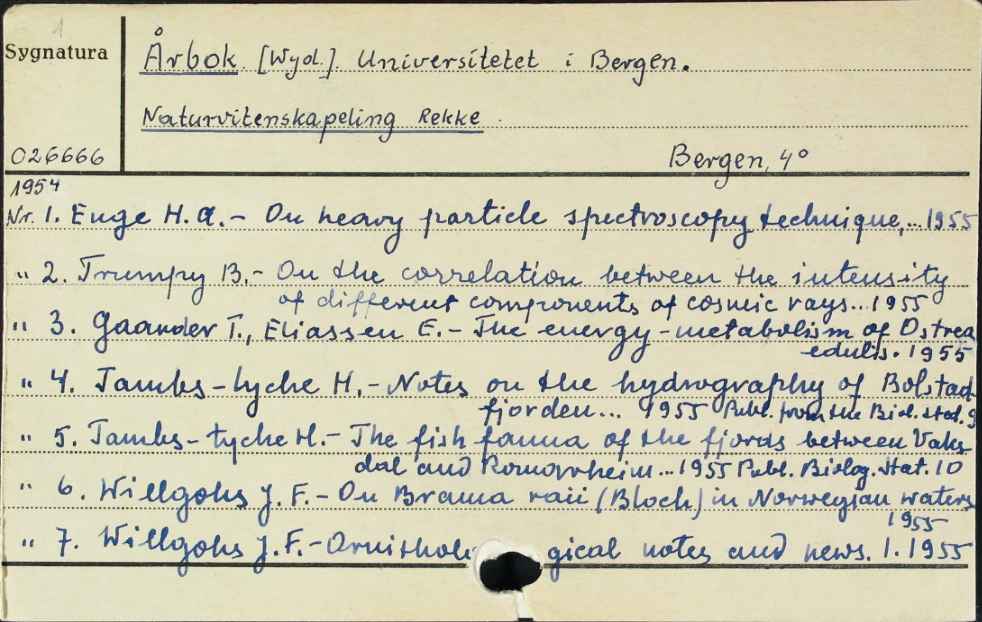 1
Sygnatura
Årbok [Wyd.]. Universitetet i Bergen.
Naturvitenskapeling Rekke
026666
Bergen, 4°
1954
Nr. 1. Enge H. A. - On heavy particle spectroscopy technique,... 1955
" 2. Trumpy B. - On the correlation between the intensity
of different components of cosmic rays... 1955
" 3. Gaarder T., Eliassen E. - The energy-metabolism of Ostrea
edulis. 1955
" 4. Tambs-lyche H. - Notes on the hydrography of Bolstad
fjorden... 1955 Publ. from the Biol. stat. 9
" 5. Tambs-tyche H. - The fish fauna of the fjords between Vaks
dal and Romarheim... 1955 Publ. Biolog. Stat. 10
" 6. Willgohs J. F. - On Brama raii (Bloch) in Norwegian waters
1955
" 7. Willgohs J. F. - Ornitholo gical notes and news. 1. 1955